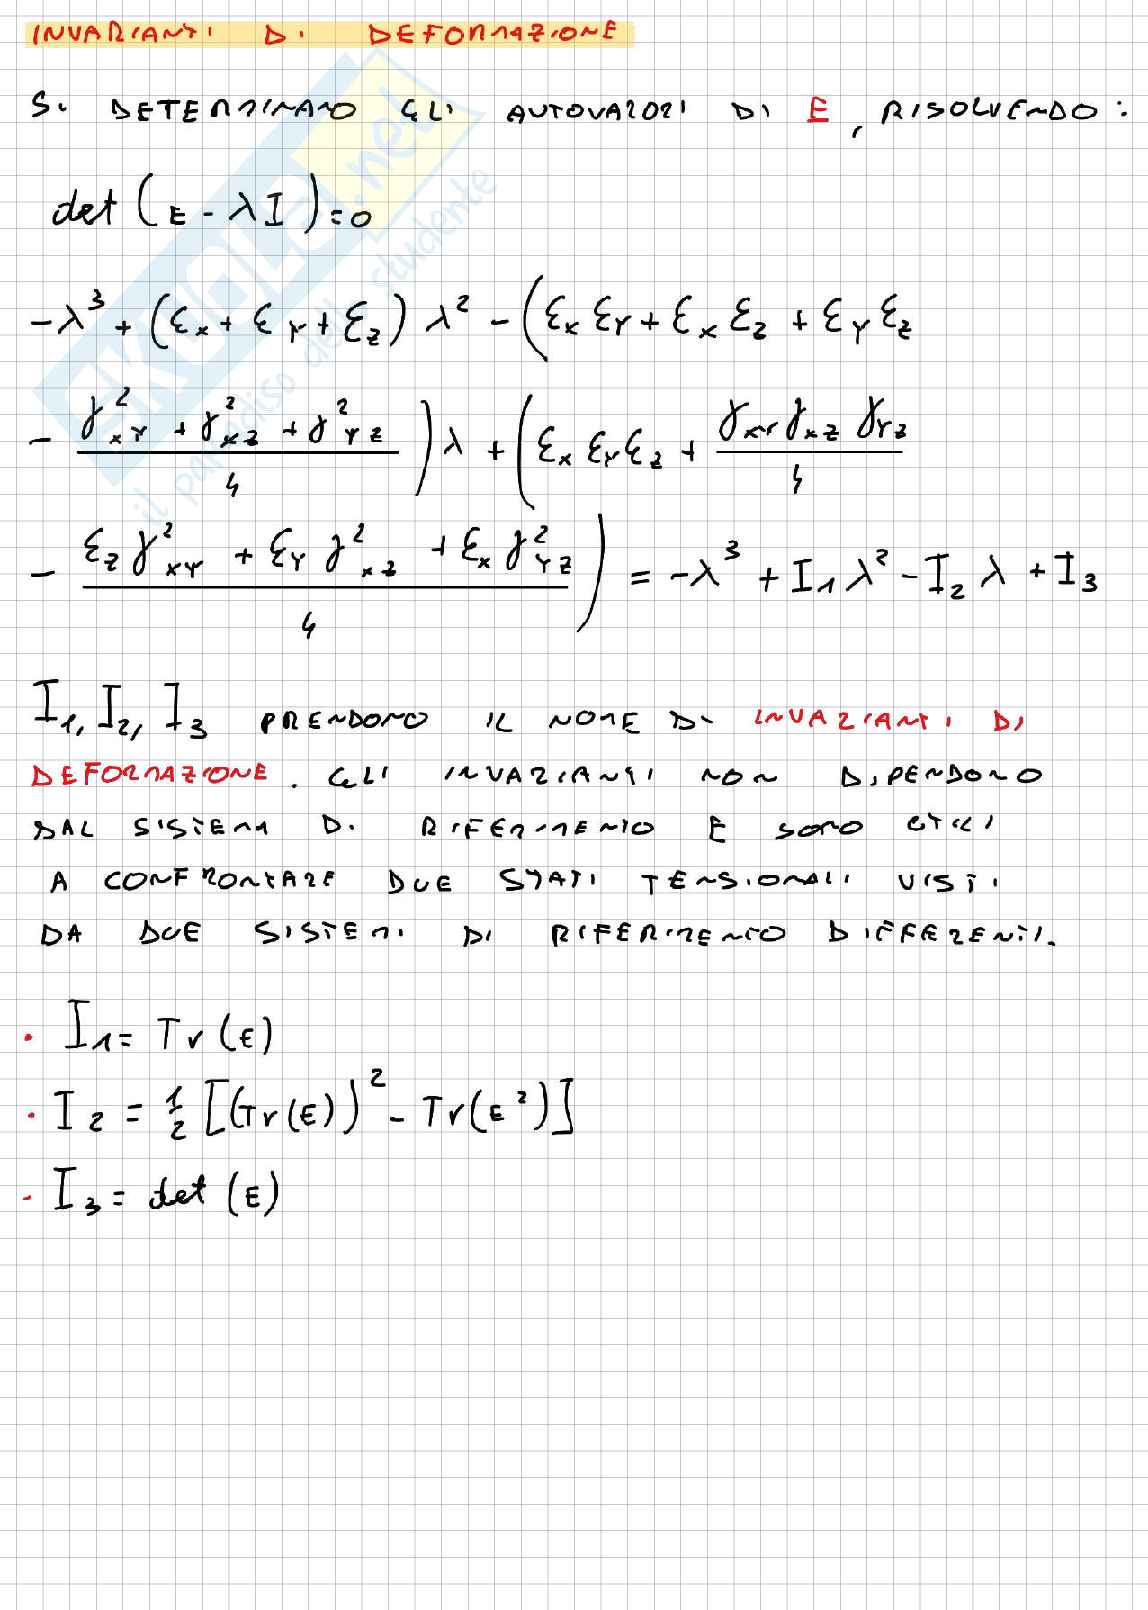 INVARIANTI DI DEFORMAZIONE
SI DETERMINANO GLI AUTOVALORI DI E, RISOLVENDO:
det(E - λI) = 0
-λ³ + (εx + εy + εz) λ² - (εx εy + εx εz + εy εz
- (γ²xy + γ²xz + γ²yz)/4) λ + (εx εy εz + (γxy γxz γyz)/4
- (εz γ²xy + εy γ²xz + εx γ²yz)/4) = -λ³ + I₁λ² - I₂λ + I₃
I₁, I₂, I₃ PRENDONO IL NOME DI INVARIANTI DI
DEFORMAZIONE. GLI INVARIANTI NON DIPENDONO
DAL SISTEMA DI RIFERIMENTO E SONO UTILI
A CONFRONTARE DUE STATI TENSIONALI VISTI
DA DUE SISTEMI DI RIFERIMENTO DIFFERENTI.
· I₁ = Tr(E)
· I₂ = ½ [(Tr(E))² - Tr(E²)]
· I₃ = det(E)
SKUOLA.net
il paradiso dello studente